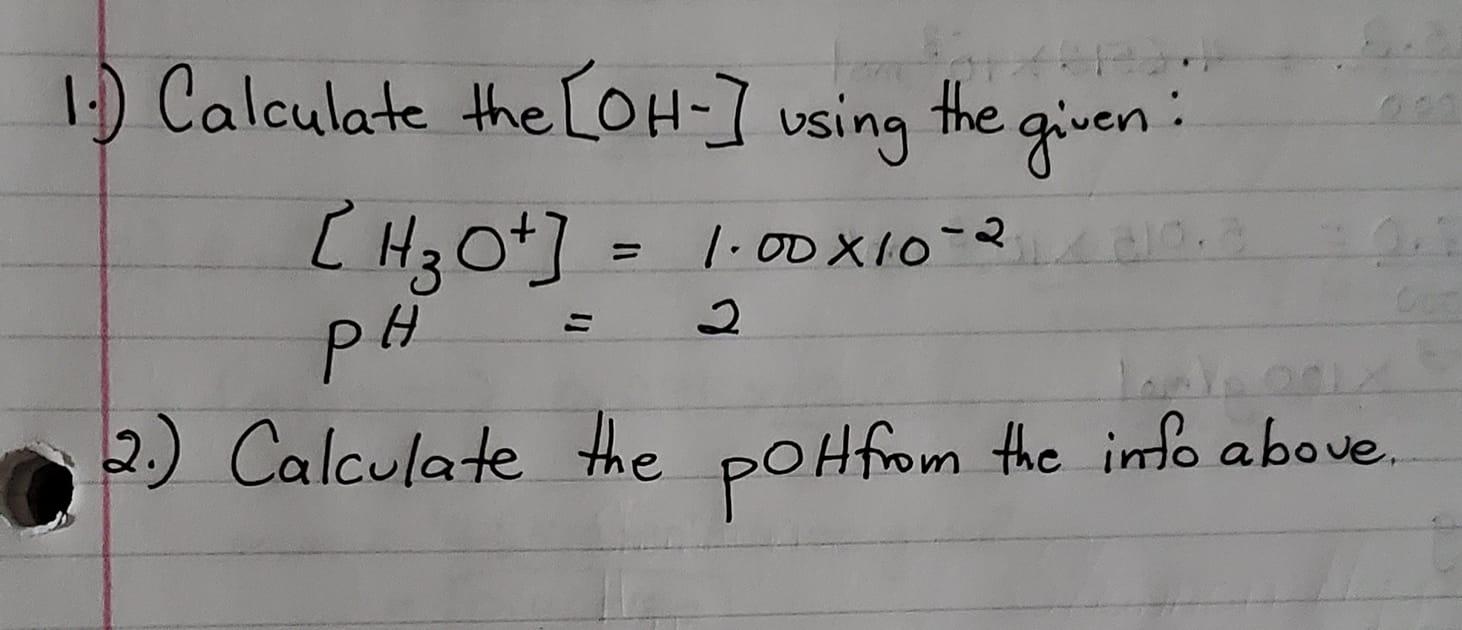 1.) Calculate the [OH-] using the given:
[H₃O⁺] = 1.00 x 10⁻²
pH = 2
2.) Calculate the pOH from the info above.